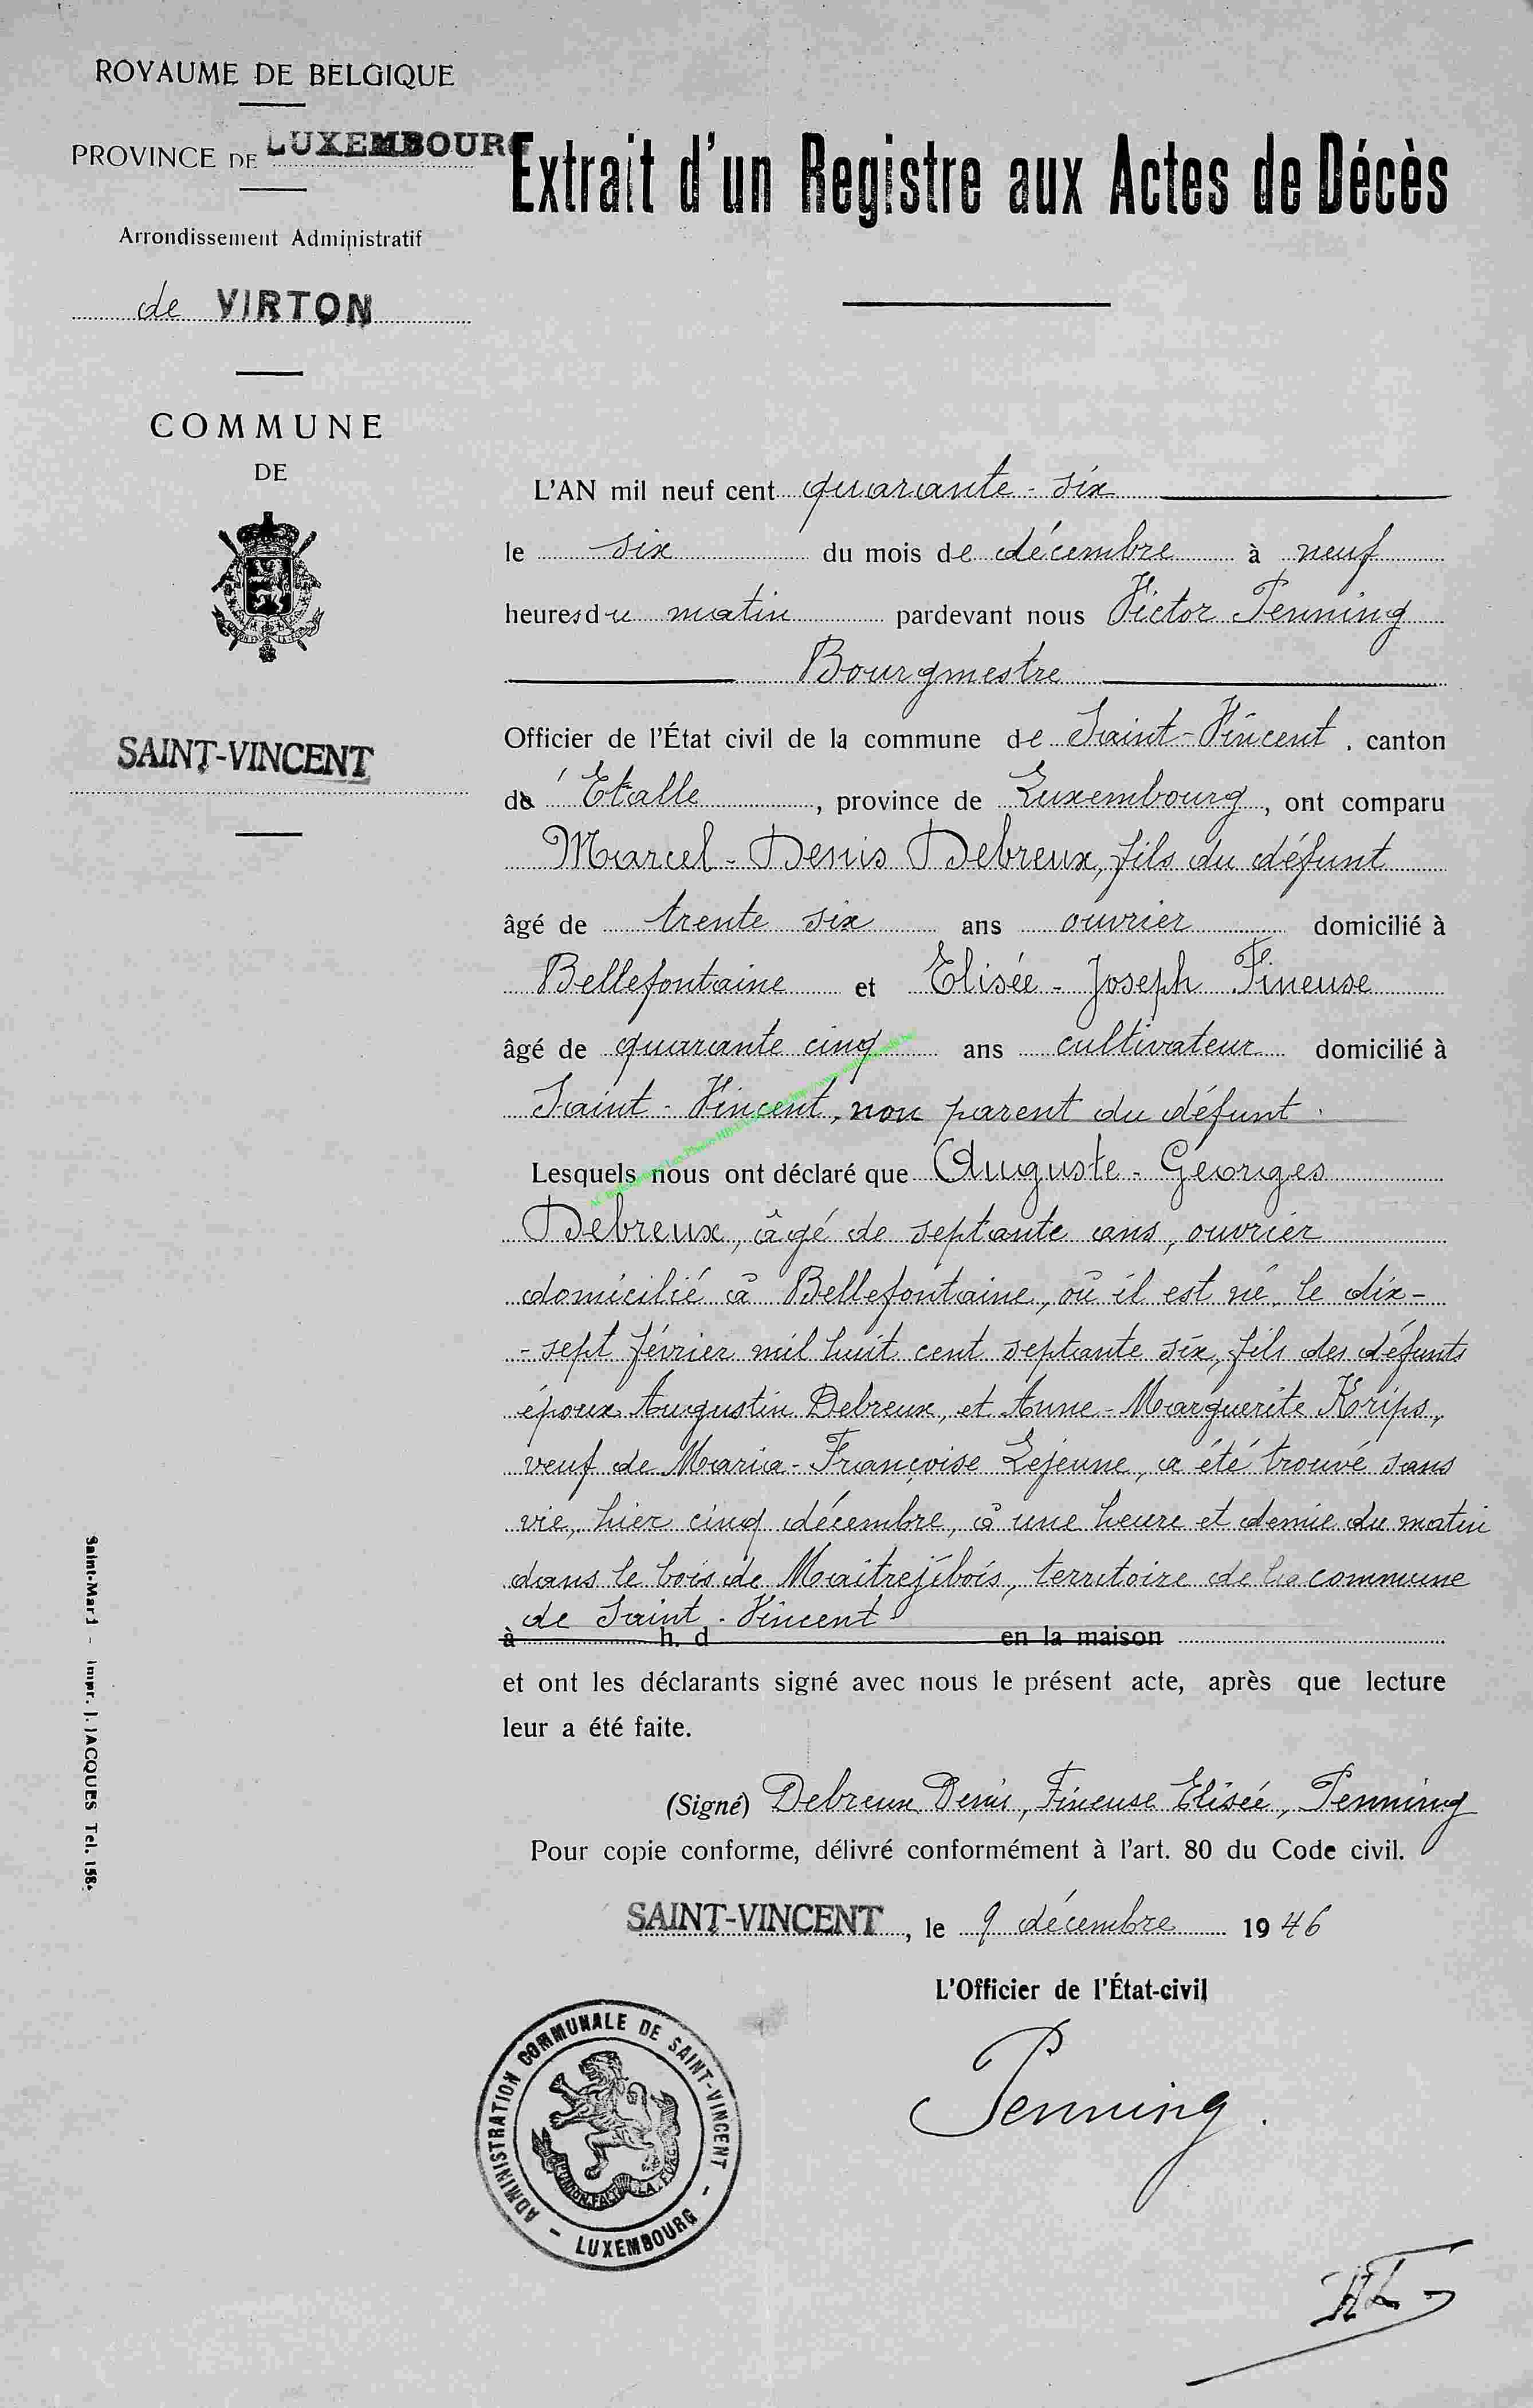 ROYAUME DE BELGIQUE
PROVINCE DE LUXEMBOURG
Extrait d'un Registre aux Actes de Décès
Arrondissement Administratif
de VIRTON
COMMUNE
DE
SAINT-VINCENT
L'AN mil neuf cent quarante-six
le six du mois de décembre à neuf
heures du matin pardevant nous Victor Penning
Bourgmestre
Officier de l'État civil de la commune de Saint-Vincent, canton
de Etalle, province de Luxembourg, ont comparu
Marcel-Denis Debreux, fils du défunt
âgé de trente six ans ouvrier domicilié à
Bellefontaine et Elisée-Joseph Fineuse
âgé de quarante cinq ans cultivateur domicilié à
Saint-Vincent, non parent du défunt.
Lesquels nous ont déclaré que Auguste-Georges
Debreux, âgé de septante ans, ouvrier
domicilié à Bellefontaine, où il est né, le dix-
-sept février mil huit cent septante six, fils des défunts
époux Augustin Debreux, et Anne-Marguerite Krips,
veuf de Maria-Françoise Lejeune, a été trouvé sans
vie, hier cinq décembre, à une heure et demie du matin
dans le bois de Maitrejèbois, territoire de la commune
de Saint-Vincent
à h. d en la maison
et ont les déclarants signé avec nous le présent acte, après que lecture
leur a été faite.
(Signé) Debreux Denis, Fineuse Elisée, Penning
Pour copie conforme, délivré conformément à l'art. 80 du Code civil.
SAINT-VINCENT, le 9 décembre 1946
L'Officier de l'État-civil
Penning.
ADMINISTRATION COMMUNALE DE SAINT-VINCENT - LUXEMBOURG -
Saint-Mard - Impr. J. JACQUES Tel. 158